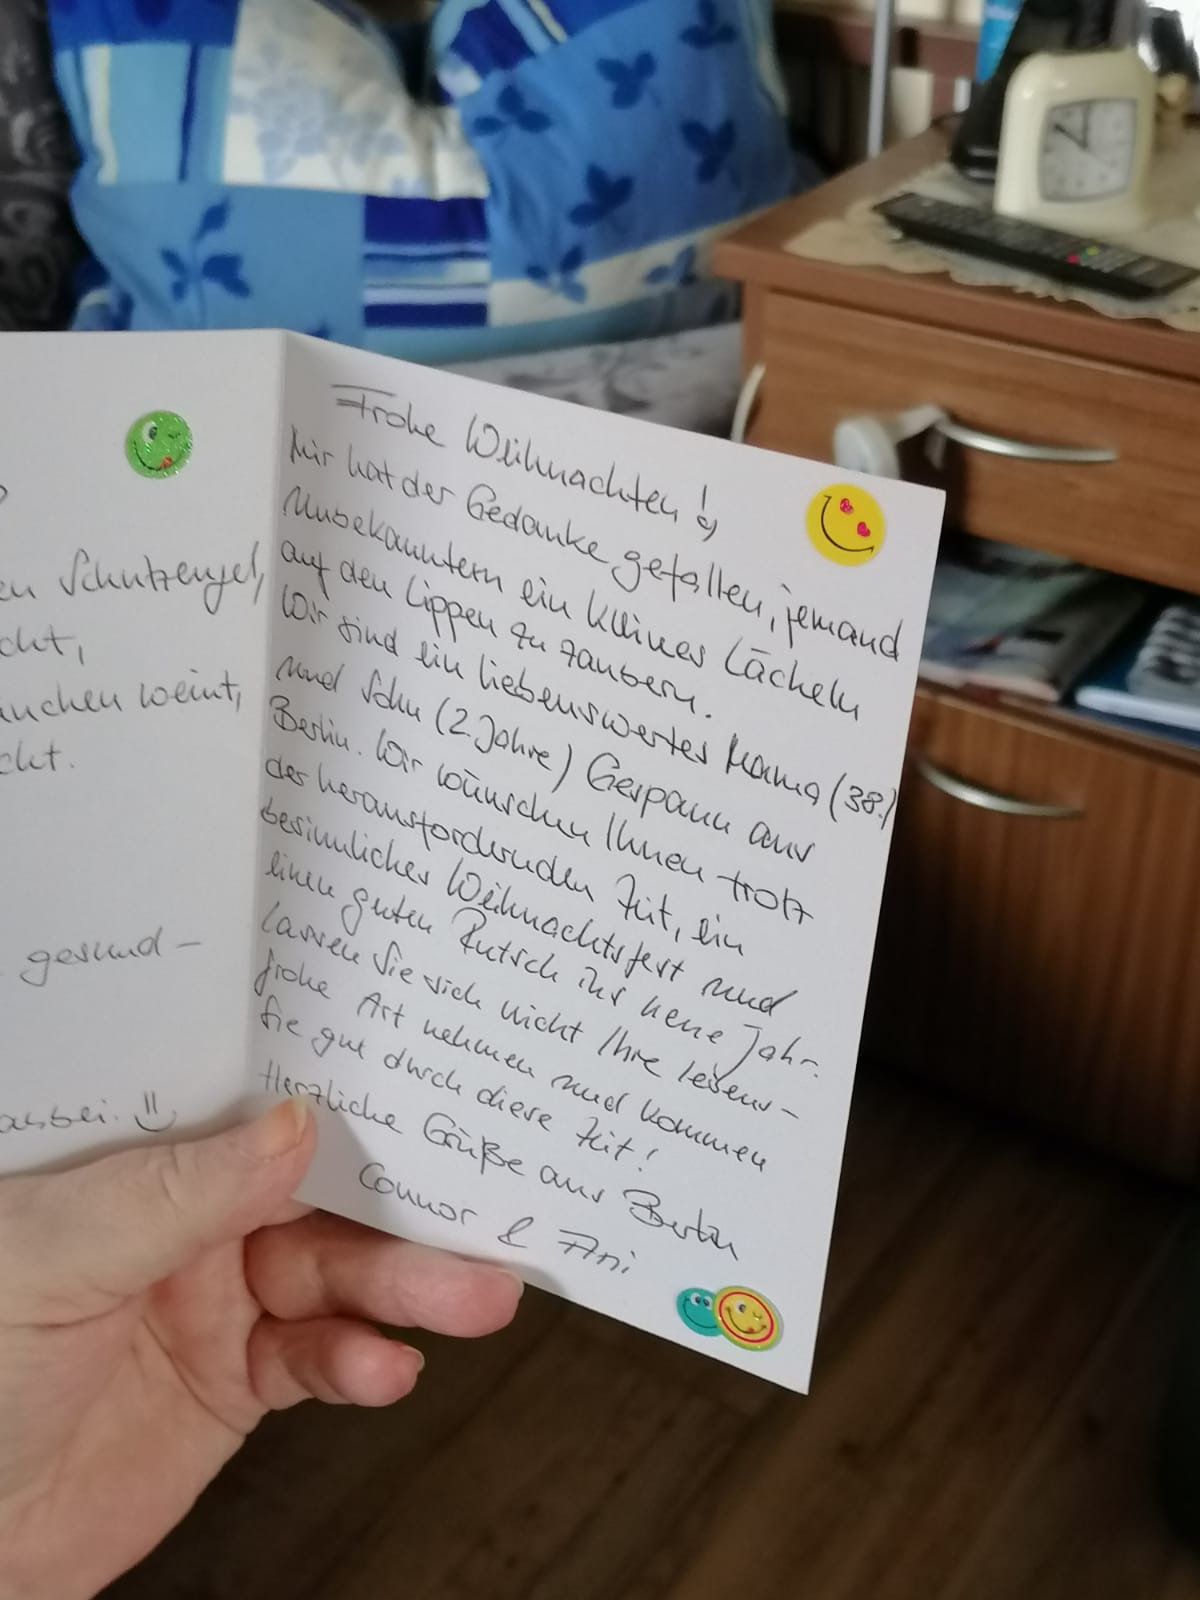 en Schutzengel,
cht,
weint,
cht.
gesund-
Frohe Weihnachten!
Mir hat der Gedanke gefallen, jemand
Unbekanntem ein kleines Lächeln
auf den Lippen zu zaubern.
Wir sind ein liebenswertes Mama (38.)
und Sohn (2. Jahre) Gespann aus
Berlin. Wir wünschen Ihnen trotz
der herausfordernden Zeit, ein
besinnliches Weihnachtsfest und
einen guten Rutsch ins neue Jahr.
Lassen Sie sich nicht Ihre lebens-
frohe Art nehmen und kommen
Sie gut durch diese Zeit!
Herzliche Grüße aus Berlin
Connor & Ani